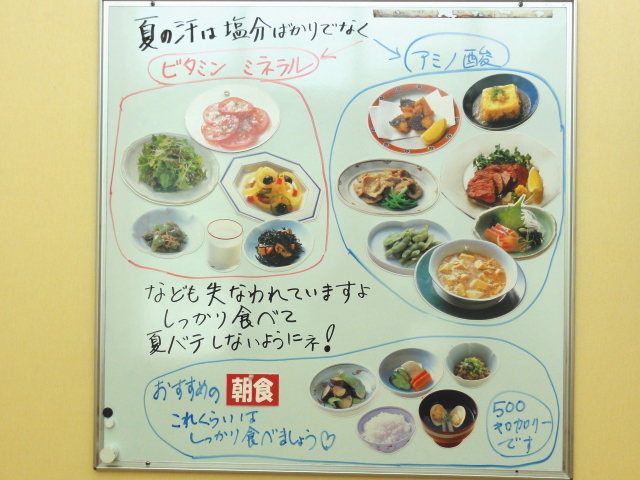 夏の汗は塩分ばかりでなく
ビタミン ミネラル
アミノ酸
なども失なわれていますよ
しっかり食べて
夏バテしないようにネ!
おすすめの 朝食
これくらいは
しっかり食べましょう♡
500
キロカロリー
です